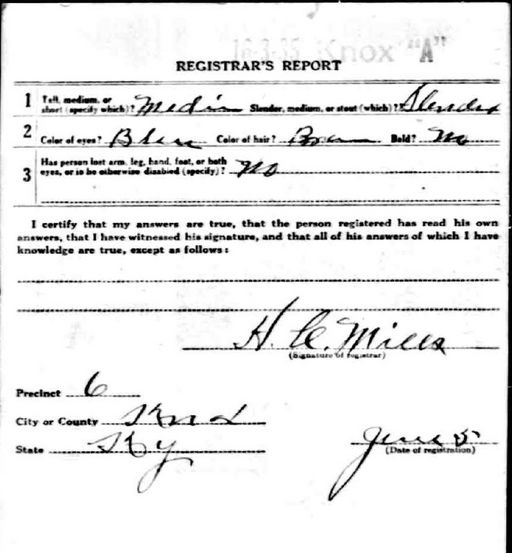 16-3-35 Knox "A"
REGISTRAR'S REPORT
1 Tall, medium, or short (specify which)? Medium Slender, medium, or stout (which)? Slender
2 Color of eyes? Blue Color of hair? Brown Bald? No
3 Has person lost arm, leg, hand, foot, or both eyes, or is he otherwise disabled (specify)? No
I certify that my answers are true, that the person registered has read his own
answers, that I have witnessed his signature, and that all of his answers of which I have
knowledge are true, except as follows:
H. C. Mills
(Signature of registrar)
Precinct 6
City or County Knox
State Ky
June 5
(Date of registration)